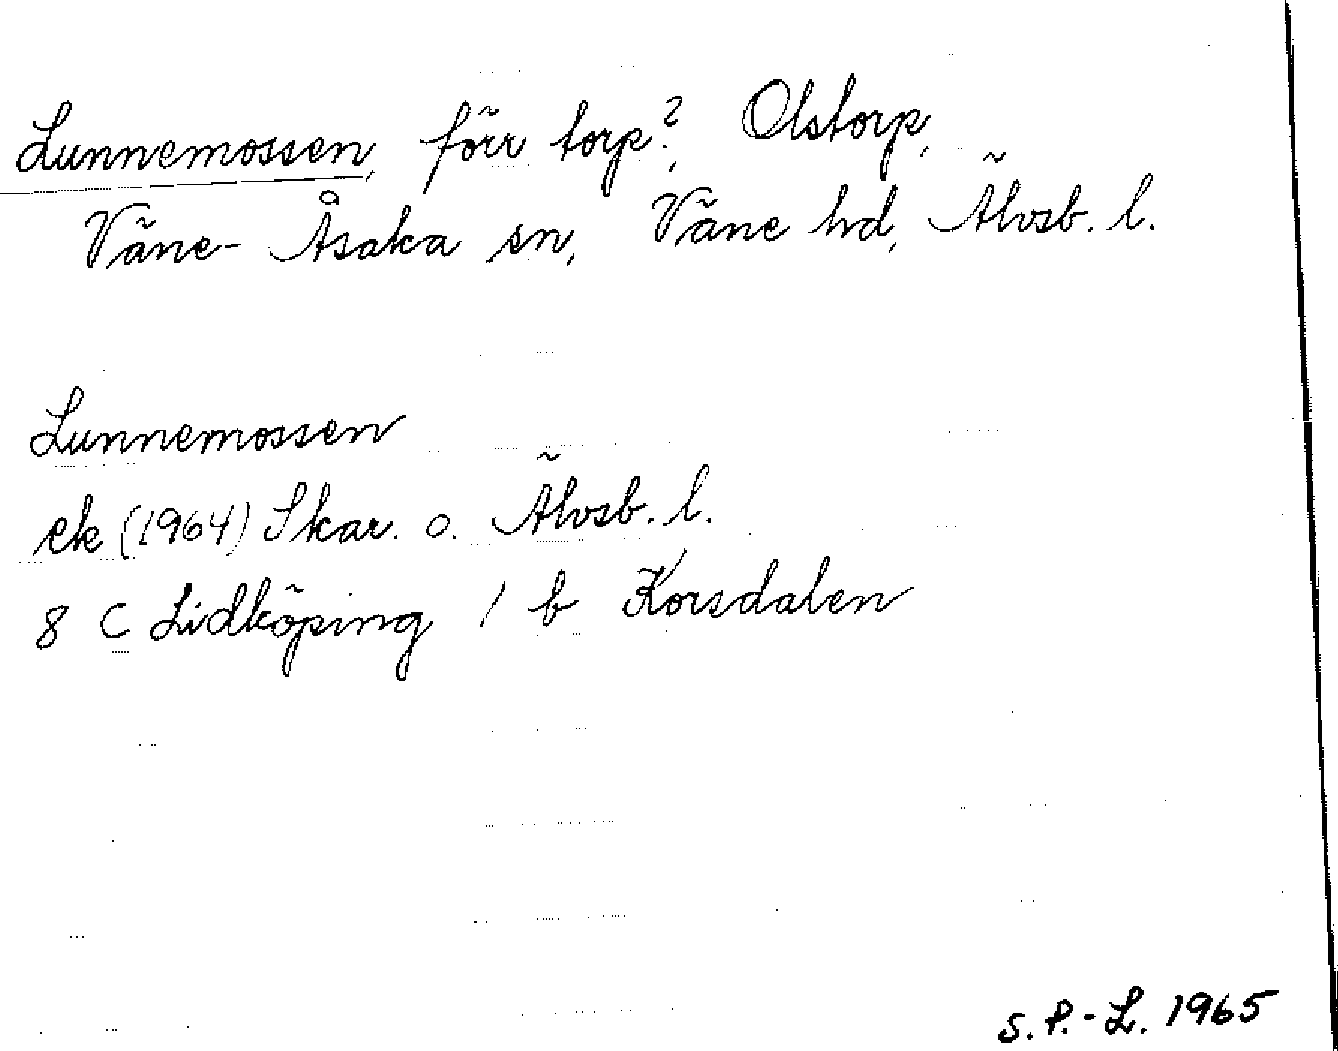 Lunnemossen, förr torp?, Olstorp,
Väne-Åsaka sn, Väne hd, Älvsb. l.
Lunnemossen
ek (1964) Skar. o. Älvsb. l.
8 C Lidköping / b Korsdalen
S.P.-L. 1965